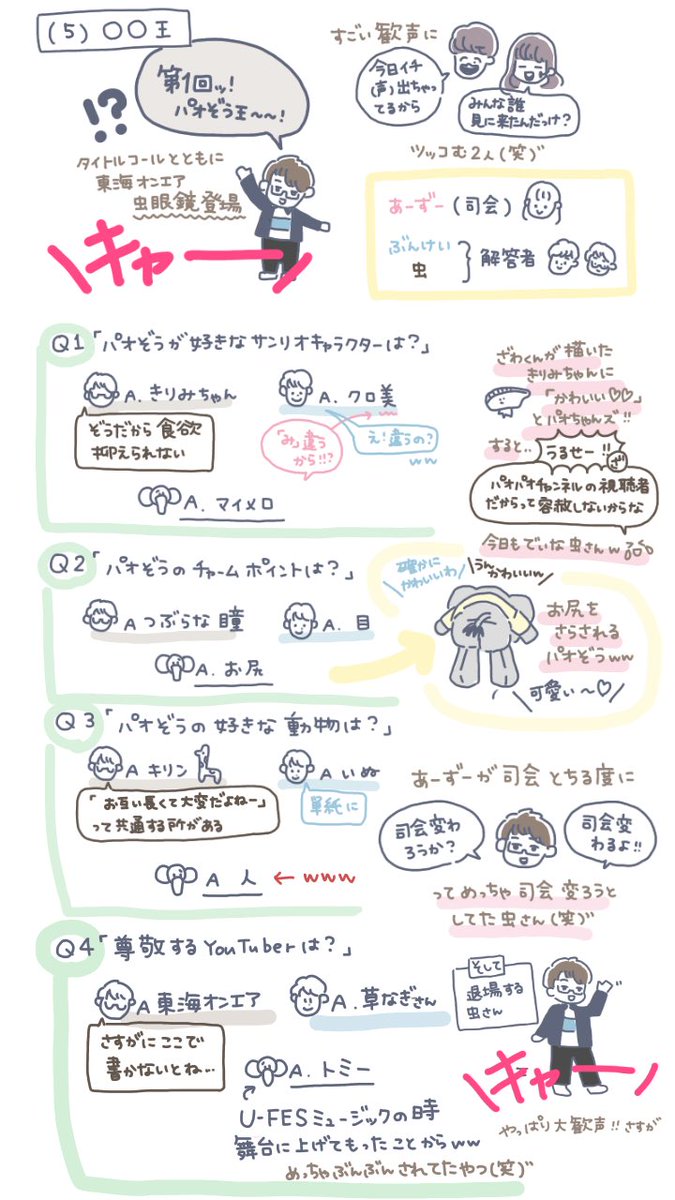 (5) 〇〇王
第1回ッ!
パオぞう王〜〜!
!?
タイトルコールとともに
東海オンエア
虫眼鏡登場
キャーー
すごい歓声に
今日イチ
(声)出ちゃっ
てるから
みんな誰
見に来たんだっけ?
ツッコむ2人(笑)
あーずー(司会)
ぶんけい
虫
解答者
Q1「パオぞうが好きなサンリオキャラクターは?」
A. きりみちゃん
ぞうだから食欲
抑えられない
A. クロ美
「み」違う
から!!?
え!違うの?
ww
A. マイメロ
ざわくんが描いた
きりみちゃんに
「かわいい♡♡」
とパオちゃんズ!!
すると..
うるせー!!
ざ
パオパオチャンネルの視聴者
だからって容赦しないからな
今日もでいな虫さんw
Q2「パオぞうのチャームポイントは?」
A つぶらな瞳
A. 目
A. お尻
確かに
かわいいわ
うん
かわいいw
お尻を
さらされる
パオぞうww
可愛い〜♡
Q3「パオぞうの好きな動物は?」
A キリン
「お互い長くて大変だよねー」
って共通する所がある
A いぬ
単純に
A 人 ← www
あーずーが司会とちる度に
司会変わ
ろうか?
司会変
わるよ!!
ってめっちゃ司会変ろうと
してた虫さん(笑)
Q4「尊敬するYouTuberは?」
A 東海オンエア
さすがにここで
書かないとね…
A. 草なぎさん
A. トミー
U-FESミュージックの時
舞台に上げてもったことからww
めっちゃぶんぶんされてたやつ(笑)
そして
退場する
虫さん
キャーー
やっぱり大歓声!!さすが